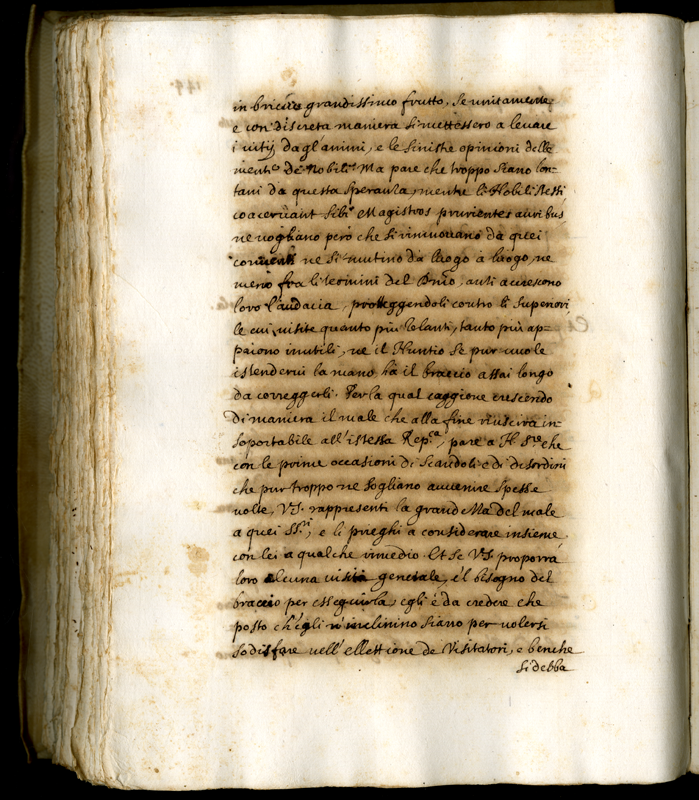 in grandissimo frutto, se unitamente
e con discreta maniera si mettessero a levare
i vitij dagl'animi, e le sinistre opinioni delle
menti de Nobili. Ma pare che troppo siano lon-
tani da questa speranza, mentre li Nobili stessi
coaceruant sibi Magistros prurientes auribus
ne vogliano però che si rimuovano da quei
conuenti, ne si mutino da luogo a luogo, ne
meno fra li termini del anzi accrescono
loro l'audacia, proteggendoli contro li Superiori,
le cui visite quanto più zelanti, tanto più ap=
paiono inutili, ne il Nuntio se pur vuole
istenderui la mano hà il braccio assai longo
da correggerli. Per la qual caggione crescendo
di maniera il male che alla fine riuscirà in-
soportabile all'istessa Rep.ca, pare a N. S.re che
con le prime occasioni di scandoli e di disordini
che pur troppo ne sogliano auuenire spesse
volte, V.S. rappresenti la grand del male
a quei SS.ri, e li prieghi a considerare insieme
con lei a qualche rimedio. Et se V.S. proporrà
loro alcuna visita generale, e'l bisogno del
braccio per esseguirla, egli è da credere che
posto ch'egli inclinino siano per volersi
sodisfare nell'ellettione de Visitatori, e benche
si debba